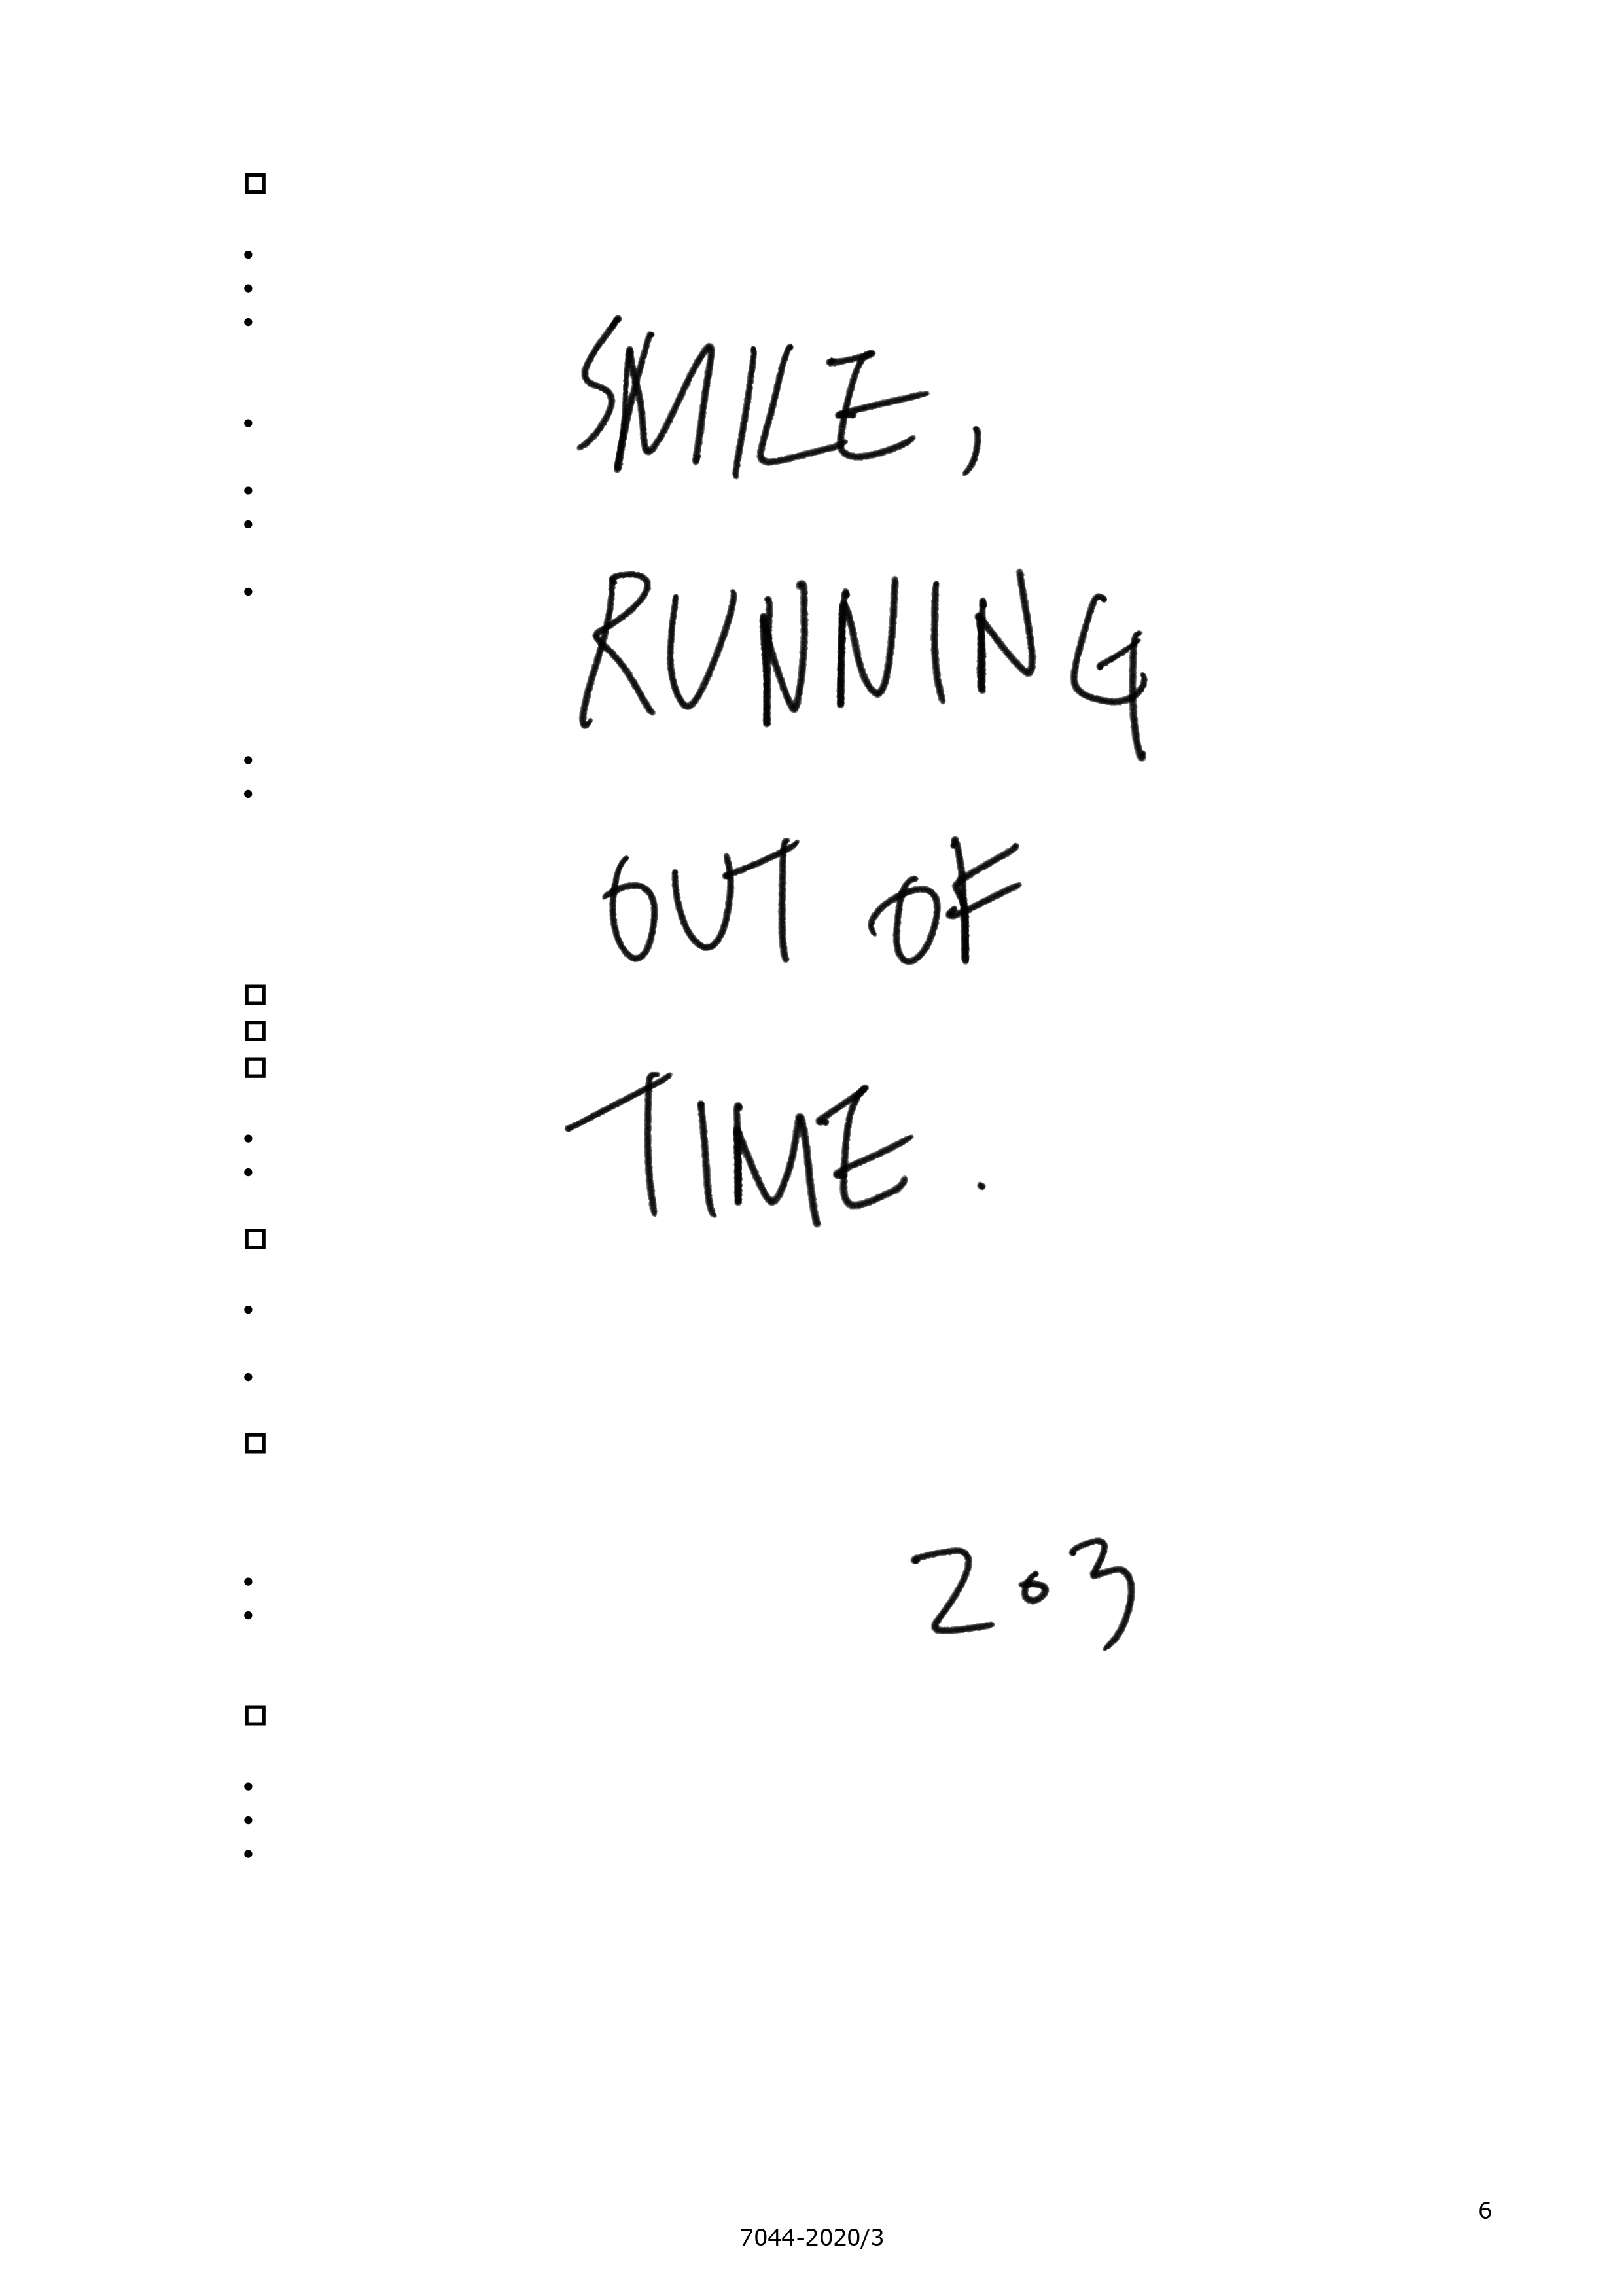 SMILE,
RUNNING
OUT OF
TIME.
203
6
7044-2020/3